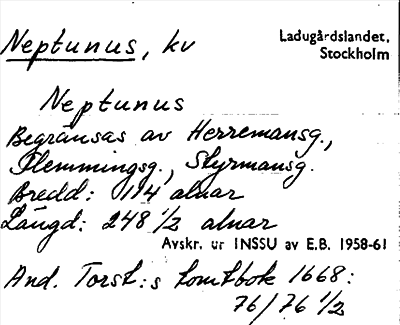 Neptunus, kv
Ladugårdslandet,
Stockholm
Neptunus
Begränsas av Herremansg.,
Flemmingsg., Styrmansg.
Bredd: 114 alnar
Längd: 248 1/2 alnar
Avskr. ur INSSU av E.B. 1958-61
And. Torst:s tomtbok 1668:
76/76 1/2